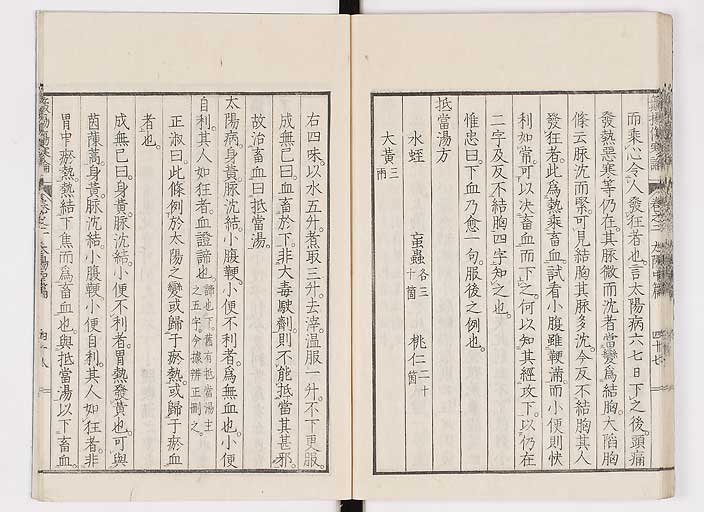 而乘心令人發狂者也。言太陽病六七日下之後。頭痛
發熱惡寒等仍在。其脈微而沈者當變爲結胸。大陷胸
條云脈沈而緊。可見結胸其脈多沈。今反不結胸其人
發狂者。此爲熱乘畜血試看小腹雖鞕滿。而小便則快
利如常。可以决畜血而下之。何以知其經攻下。以仍在
二字及反不結胸四字知之也。
惟忠曰。下血乃愈一句。服後之例也。
抵當湯方
水蛭 䖟蟲各三十箇 桃仁二十箇
大黃三兩
右四味。以水五升。煮取三升。去滓。温服一升。不下更服。
成無已曰。血畜於下。非大毒駃劑。則不能抵當其甚邪。
故治畜血曰抵當湯。
太陽病。身黃。脈沈結。小腹鞕。小便不利者。爲無血也。小便
自利。其人如狂者。血證諦也。諦也下。舊有抵當湯主之五字。今據辨正刪之。
正淑曰。此條例於太陽之變或歸于瘀熱。或歸于瘀血
者也。
成無已曰。身黃。脈沈結。小便不利者。胃熱發黃也。可與
茵蔯蒿。身黃。脈沈結。小腹鞕。小便自利。其人如狂者。非
胃中瘀熱。熱結下焦而爲畜血也。與抵當湯以下畜血。